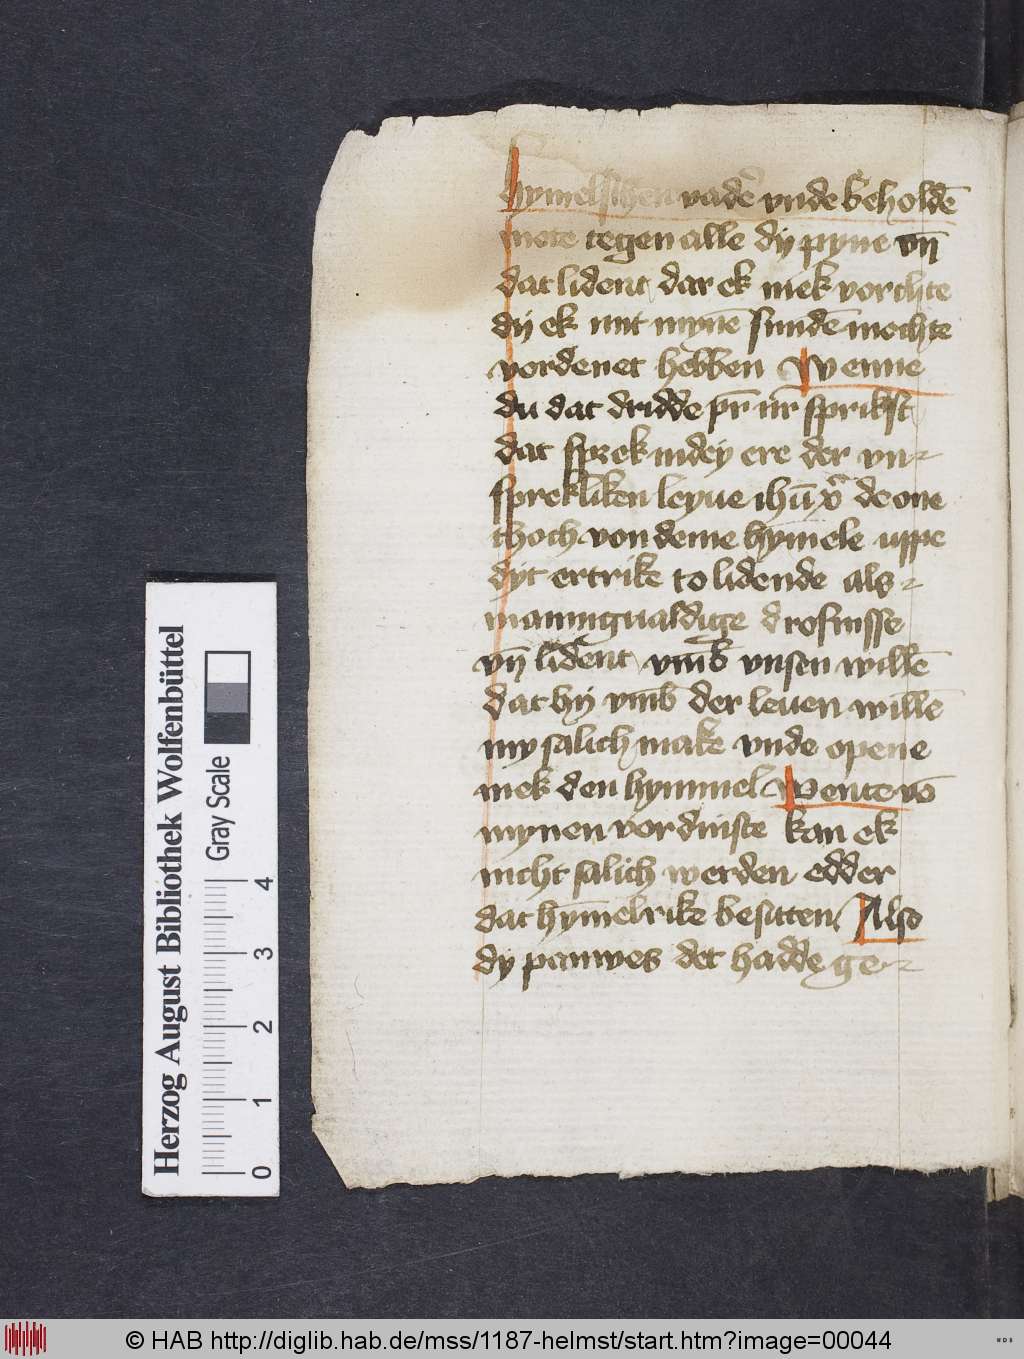 hymelschen vadeꝛ̄ vnde beholdē
mote tegen alle dy pyne vn̄
dat lident dar ek mek vorchte
dij ek mit mynē sundē mochte
vordenet hebben Wenne
du dat dridde pr̄ nr̄ sprikst
dat sprek in dey ere der vn-
sprekliken leyue ihū xp̄ de one
thoch von deme hymele uppe
dyt ertrike to lidende als-
mannigualdige drofnisse
vn̄ lident vm̄b vnsen willē
dat hij vm̄b der leuen willē
my salich make vnde opene
mek den hymmel Wente vō
mynen vordinste kan ek
nicht salich werden edder
dat hȳmelrike besitten Also
dy pauwes det hadde ge-
Herzog August Bibliothek Wolfenbüttel
Gray Scale
0 1 2 3 4
© HAB http://diglib.hab.de/mss/1187-helmst/start.htm?image=00044
WDB